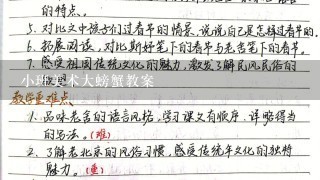 的特点。
5. 对比文中孩子们过春节的情景,说说自己是怎样过春节的。
6. 拓展阅读,对比斯妤笔下的春节与老舍笔下的春节。
7. 感受祖国传统文化的魅力,激发了解民风民俗的
小班美术大螃蟹教案
教学重难点
1. 品味老舍的语言风格,学习课文有顺序、详略得当
的写法。(难)
2. 了解老北京的风俗习惯,感受传统年文化的独特
魅力。(重)